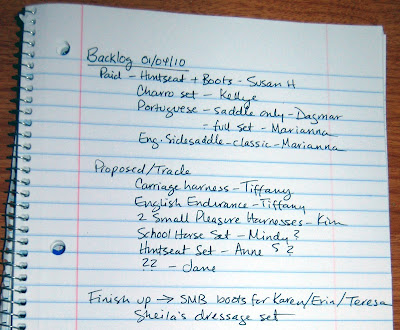 Backlog 01/04/10
Paid - Huntseat + Boots - Susan H
Charro set - Kellye
Portuguese - saddle only - Dagmar
= full set - Marianna
Eng. Sidesaddle - classic - Marianna
Proposed/Trade
Carriage harness - Tiffany
English Endurance - Tiffany
2 Small Pleasure Harnesses - Kim
School Horse Set - Mindy ?
Huntseat Set - Anne S ?
?? - Jane
Finish up → SMB boots for Karen/Erin/Teresa
Sheila's dressage set